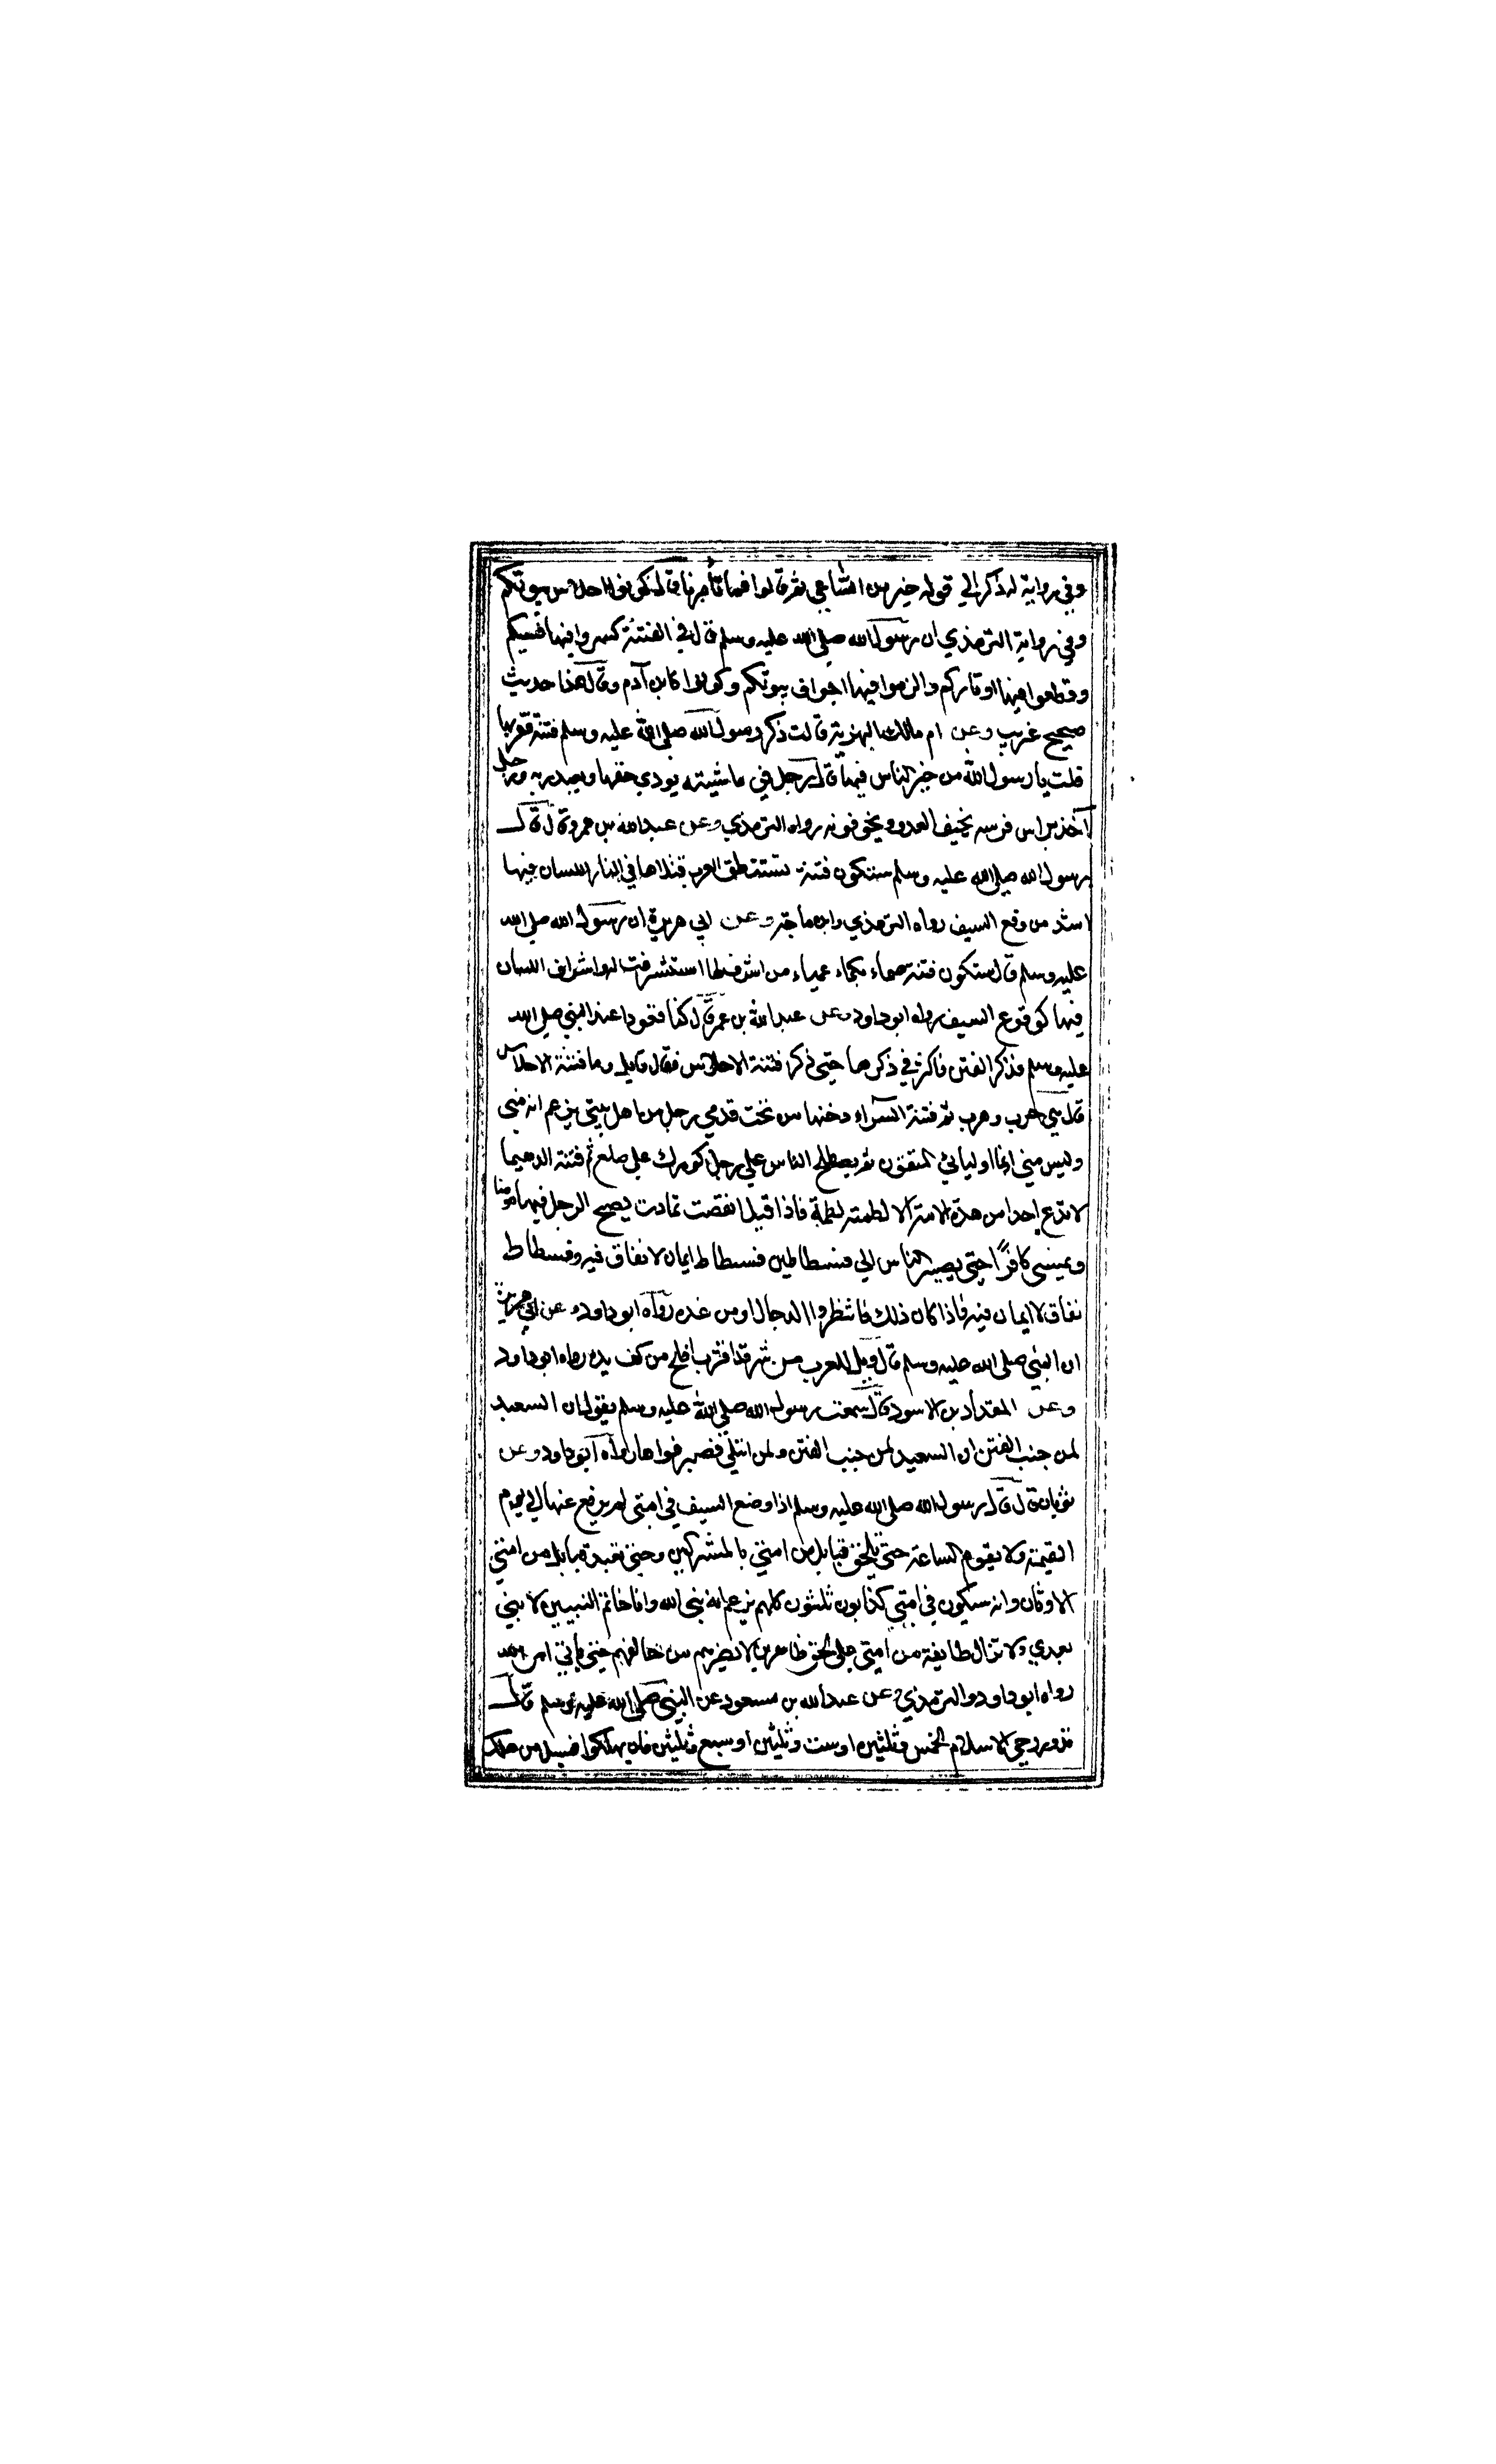 وفي رواية له ذكر الي قوله خير من الساعي ثم قالوا فما تأمرنا قال كونوا احلاس بيوتكم
وفي رواية الترمذي ان رسول الله صلى الله عليه وسلم قال في الفتنة كسروا فيها قسيكم
وقطعوا فيها اوتاركم والزموا فيها اجواف بيوتكم وكونوا كابن آدم وقال هذا حديث
صحيح غريب وعن ام مالك البهزية قالت ذكر رسول الله صلى الله عليه وسلم فتنة فقربها
قلت يا رسول الله من خير الناس فيها قال رجل في ماشيته يودي حقها ويعبد ربه ورجل
آخذ براس فرسه يخيف العدو ويخوفونه رواه الترمذي وعن عبد الله بن عمرو قال قال
رسول الله صلى الله عليه وسلم ستكون فتنة تستنظف العرب قتلاها في النار اللسان فيها
اشد من وقع السيف رواه الترمذي وابن ماجة وعن ابي هريرة ان رسول الله صلى الله
عليه وسلم قال ستكون فتنة صماء بكماء عمياء من اشرف لها استشرفت له واشراف اللسان
فيها كوقوع السيف رواه ابو داود وعن عبد الله بن عمر قال كنا قعودا عند النبي صلى الله
عليه وسلم فذكر الفتن فاكثر في ذكرها حتى ذكر فتنة الاحلاس فقال قايل وما فتنة الاحلاس
قال هي هرب وحرب ثم فتنة السراء دخنها من تحت قدمي رجل من اهل بيتي يزعم انه مني
وليس مني انما اوليائي المتقون ثم يصطلح الناس على رجل كورك على ضلع ثم فتنة الدهيما
لا تدع احدا من هذه الامة الا لطمته لطمة فاذا قيل انقضت تمادت يصبح الرجل فيها مومنا
ويمسي كافرًا حتى يصير الناس الي فسطاطين فسطاط ايمان لا نفاق فيه وفسطاط
نفاق لا ايمان فيه فاذا كان ذلك فانتظروا الدجال او من غده رواه ابو داود وعن ابي هريرة
ان النبي صلى الله عليه وسلم قال ويل للعرب من شر قد اقترب افلح من كف يده رواه ابو داود
وعن المقداد بن الاسود قال سمعت رسول الله صلى الله عليه وسلم يقول ان السعيد
لمن جنب الفتن ان السعيد لمن جنب الفتن ولمن ابتلي فصبر فواها رواه ابو داود وعن
ثوبان قال قال رسول الله صلى الله عليه وسلم اذا وضع السيف في امتي لم يرفع عنها الي يوم
القيمة ولا يقوم الساعة حتى يلحق قبايل من امتي بالمشركين وحتى تعبد قبايل من امتي
الاوثان وانه سيكون في امتي كذابون ثلثون كلهم يزعم انه نبي الله وانا خاتم النبيين لا نبي
بعدي ولا تزال طايفة من امتي على الحق ظاهرين لا يضرهم من خالفهم حتى ياتي امر الله
رواه ابو داود والترمذي وعن عبد الله بن مسعود عن النبي صلى الله عليه وسلم قال
تدور رحى الاسلام لخمس وثلثين او ست وثلثين او سبع وثلثين فان يهلكوا فسبيل من هلك